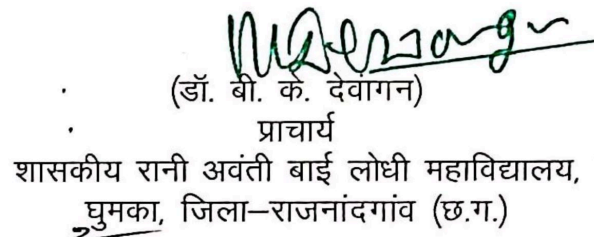 (डॉ. बी. के. देवांगन)
प्राचार्य
शासकीय रानी अवंती बाई लोधी महाविद्यालय,
घुमका, जिला–राजनांदगांव (छ.ग.)